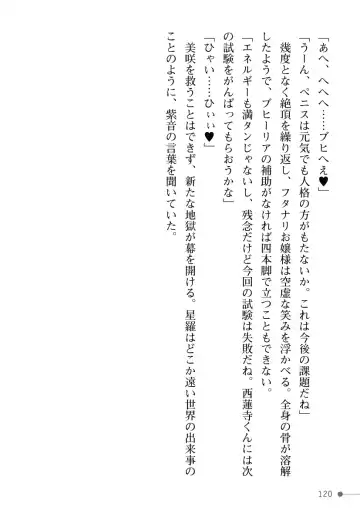 「あへ、へへへ……ブヒへぇ♥」
「うーん、ペニスは元気でも人格の方がもたないか。これは今後の課題だね」
幾度となく絶頂を繰り返し、フタナリお嬢様は空虚な笑みを浮かべる。全身の骨が溶解
したようで、ブヒーリアの補助がなければ四本脚で立つこともできない。
「エネルギーも満タンじゃないし、残念だけど今回の試験は失敗だね。西蓮寺くんには次
の試験をがんばってもらおうかな」
「ひゃい……ひぃぃ♥」
美咲を救うことはできず、新たな地獄が幕を開ける。星羅はどこか遠い世界の出来事の
ことのように、紫音の言葉を聞いていた。
120